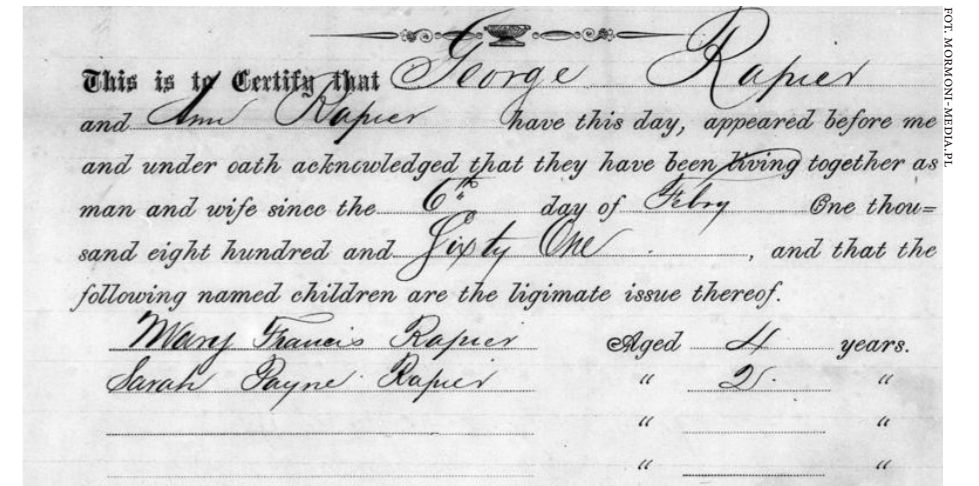 This is to Certify that George Rapier
and Ann Rapier have this day, appeared before me
and under oath acknowledged that they have been living together as
man and wife since the 6th day of Febry One thou=
sand eight hundred and Sixty One, and that the
following named children are the ligimate issue thereof.
Mary Francis Rapier Aged 4 years.
Sarah Payne Rapier " 2 "
" "
" "
FOT. MORMONI-MEDIA.PL